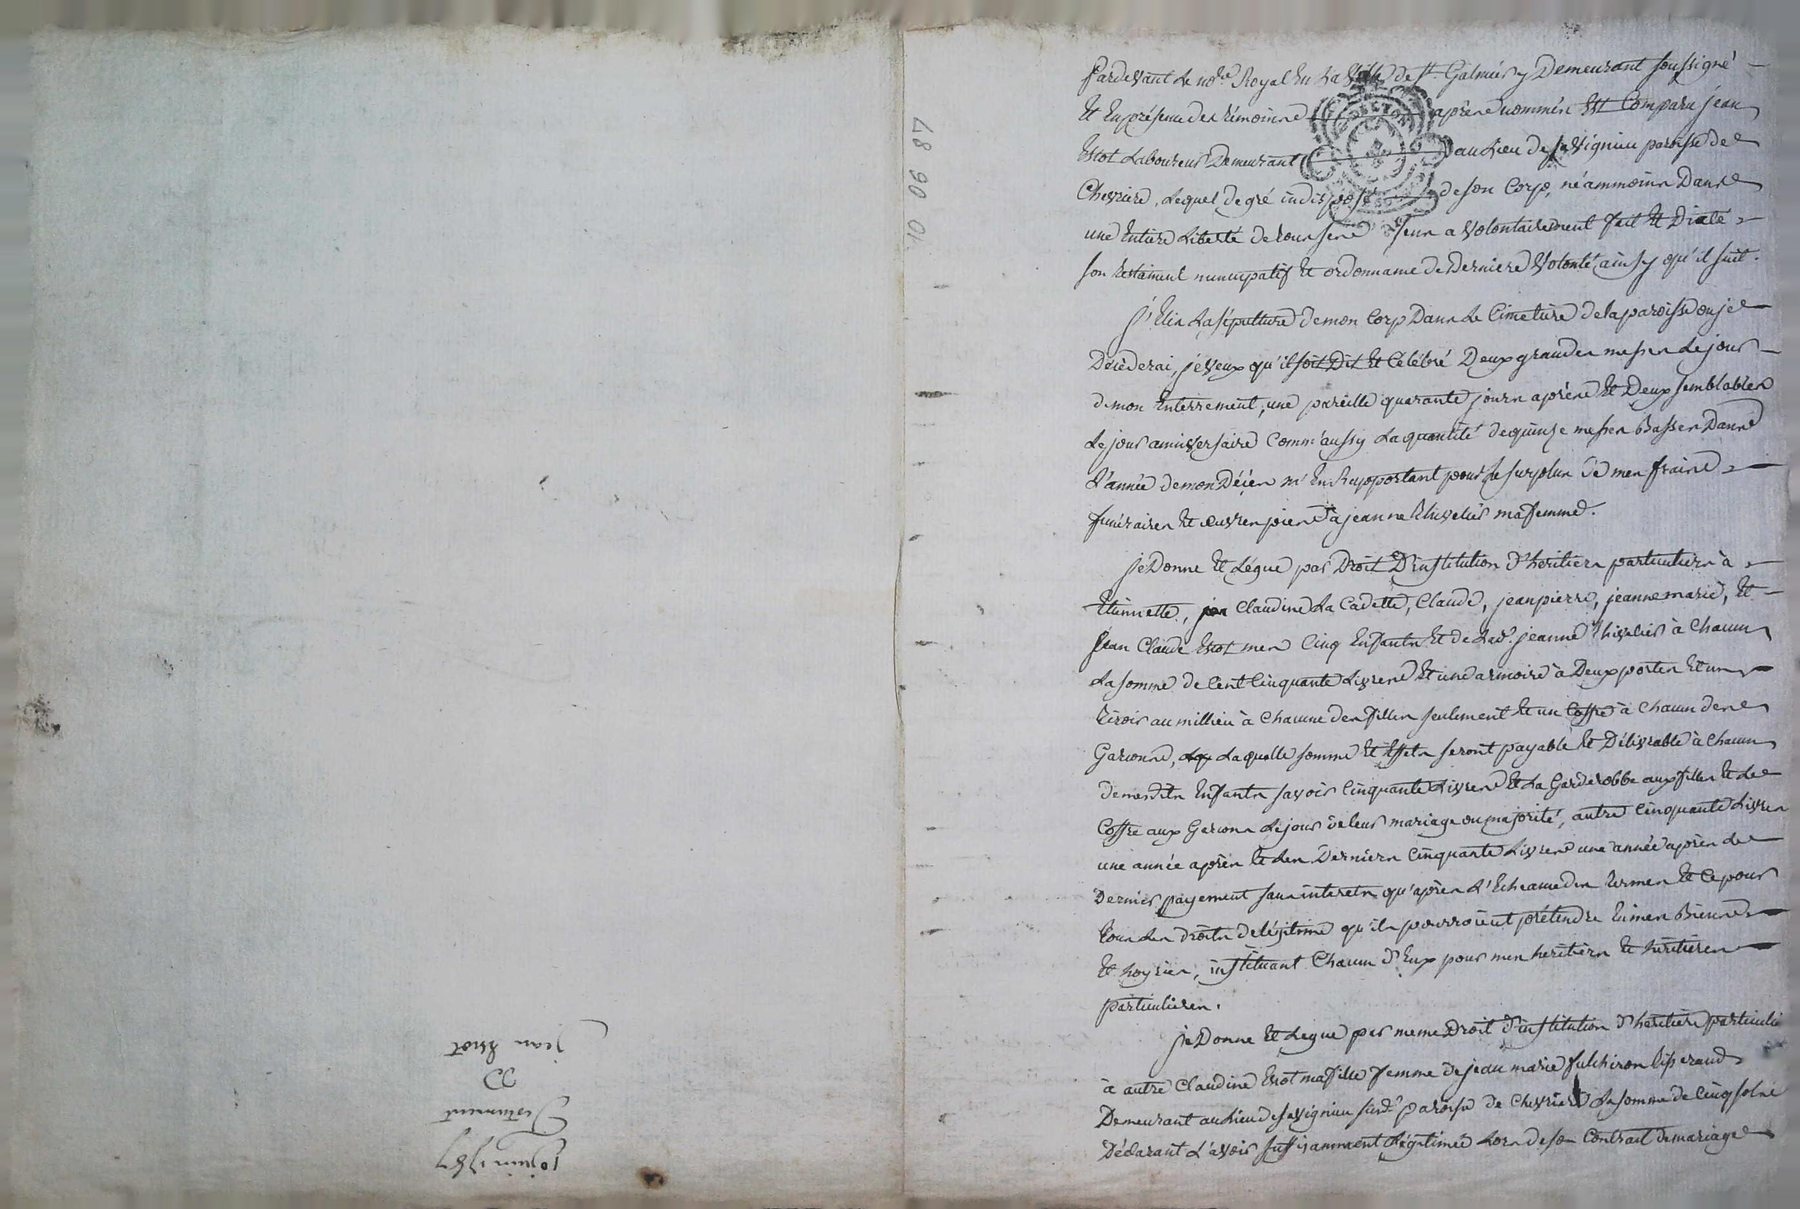 Pardevant Le no.re Royal En La Ville de St. Galmier y Demeurant soussigné
Et En présence des témoins aprés nommés Est Comparu jean
Estot Laboureur Demeurant au Lieu de savignieu paroisse de
Chevriere, Lequel de gré indisposé de son Corps, néammoins Dans
une Entiere Liberté de tous ses sens a Volontairement fait Et Dicté
son testament nuncupatif Et ordonnance de Derniere Volonté ainsy qu'il suit.
j'Elis La sépulture de mon Corps Dans Le Cimetiere de la paroisse ou je
Décéderai, je veux qu'il soit Dit Et Célébré Deux grandes messes Le jour
de mon Enterrement, une pareille quarante jours aprés Et Deux semblables
Le jour anniversaire Comm'aussy La quantité de quinze messes Basses Dans
L'année de mon Décés m'En Rapportant pour Le surplus de mes frais
funéraires Et œuvres pies a jeanne Thivelier ma femme.
je Donne Et Légue par Droit D'institution d'heritiers particuliers à
Etiennette, Claudine La Cadette, Claude, jean pierre, jeanne marie, Et
jean Claude Estot mes Cinq Enfants Et de Lad. jeanne Thivelier à Chacun
La somme de Cent Cinquante Livres Et une armoire à Deux portes Et un
tiroir au millieu à Chacune des filles seulement Et un Coffre à Chacun des
Garcons, Laquelle somme Et Effets seront payable Et Délivrable à Chacun
de mesdits Enfants savoir Cinquante Livres Et La Garderobbe aux filles Et Le
Coffre aux Garcons Le jour de leur mariage ou majorité, autre Cinquante Livres
une année aprés Et Les Derniers Cinquante Livres une année aprés Le
Dernier payement sans interets qu'aprés L'Echeance des termes Et Ce pour
tous Les droits de légitime qu'ils pourroient prétendre En mes Biens
Et hoyries, instituant Chacun d'Eux pour mes heritiers Et héritieres
particulieres.
je Donne Et Legue par meme Droit d'institution d'heritiere particulie
à autre Claudine Estot ma fille femme de jean marie fulchiron
Demeurant au Lieu de savignieu susd. paroisse de Chevriere La somme de Cinq sols
Déclarant L'avoir suffisamment Légitimée Lors de son Contrat de mariage
48 90 01.
10 juin 1787
Testament
De
jean Estot